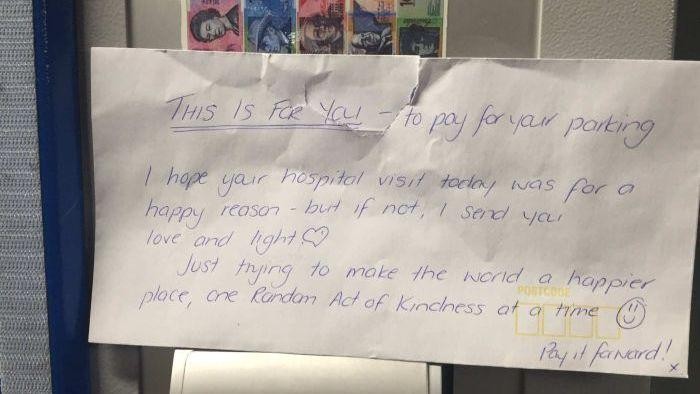 THIS IS FOR YOU - to pay for your parking
I hope your hospital visit today was for a
happy reason - but if not, I send you
love and light ♡
Just trying to make the world a happier
POSTCODE
place, one Random Act of Kindness at a time ☺
Pay it forward!
x